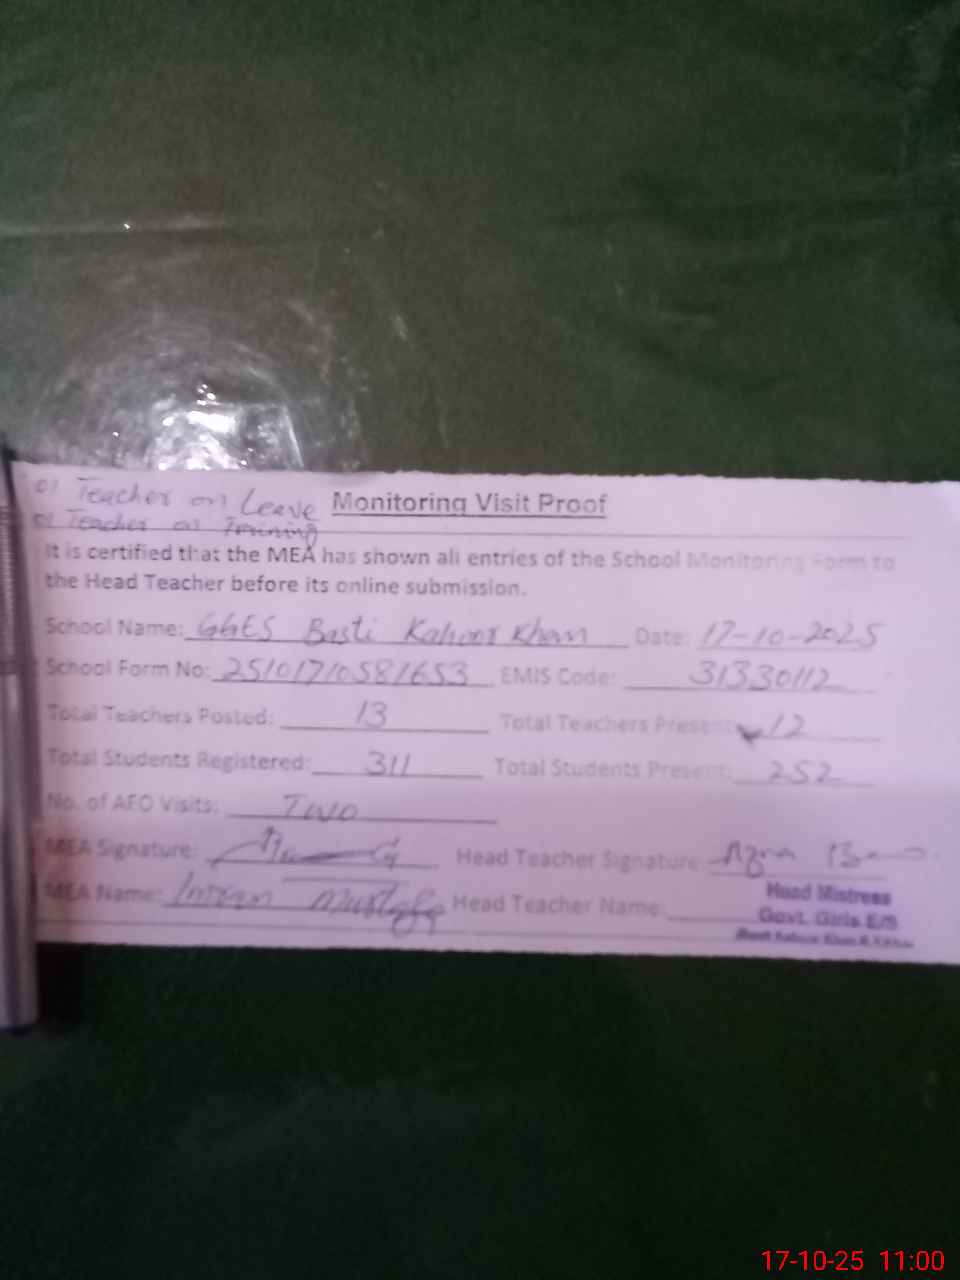 01 Teacher on Leave
01 Teacher on Training
Monitoring Visit Proof
It is certified that the MEA has shown all entries of the School Monitoring Form to
the Head Teacher before its online submission.
School Name: GGES Basti Kahoor Khan Date: 17-10-2025
School Form No: 25101710581653 EMIS Code: 31330112
Total Teachers Posted: 13 Total Teachers Present: 12
Total Students Registered: 311 Total Students Present: 252
No. of AEO Visits: Two
MEA Signature: Head Teacher Signature: Azra
MEA Name: Imran Mustafa Head Teacher Name
Head Mistress
Govt. Girls E/S
Khan R.Y.Khan
17-10-25 11:00